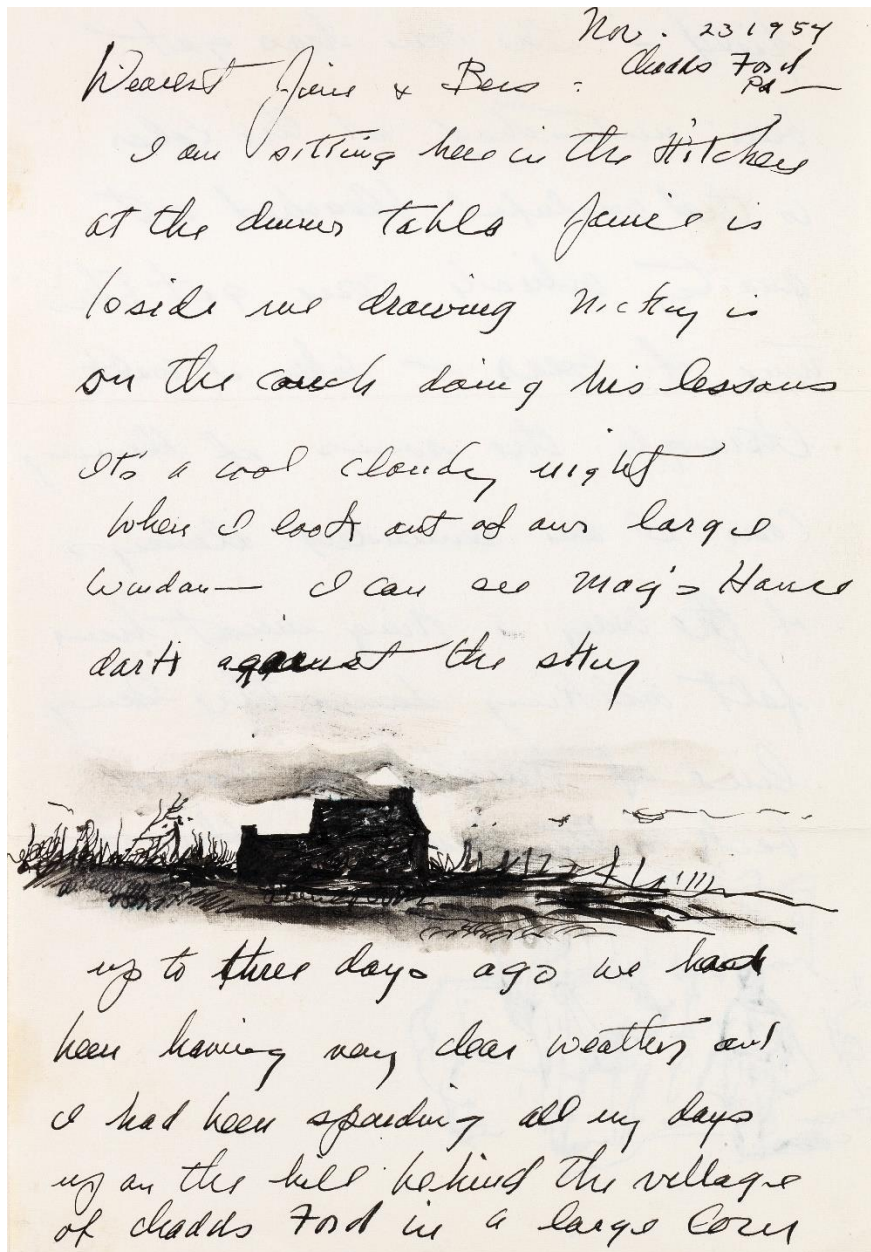 Nov. 23 1954
Chadds Ford
Pa —
Dearest & Bess :
I am sitting here in the Kitchen
at the dinner table Jamie is
beside me drawing Nicky is
on the couch doing his lessons
It's a cool cloudy night
When I look out of our large
window — I can see House
dark against the sky
up to three days ago we had
been having very clear weather and
I had been spending all my days
up on the hill behind the village
of Chadds Ford in a large corn